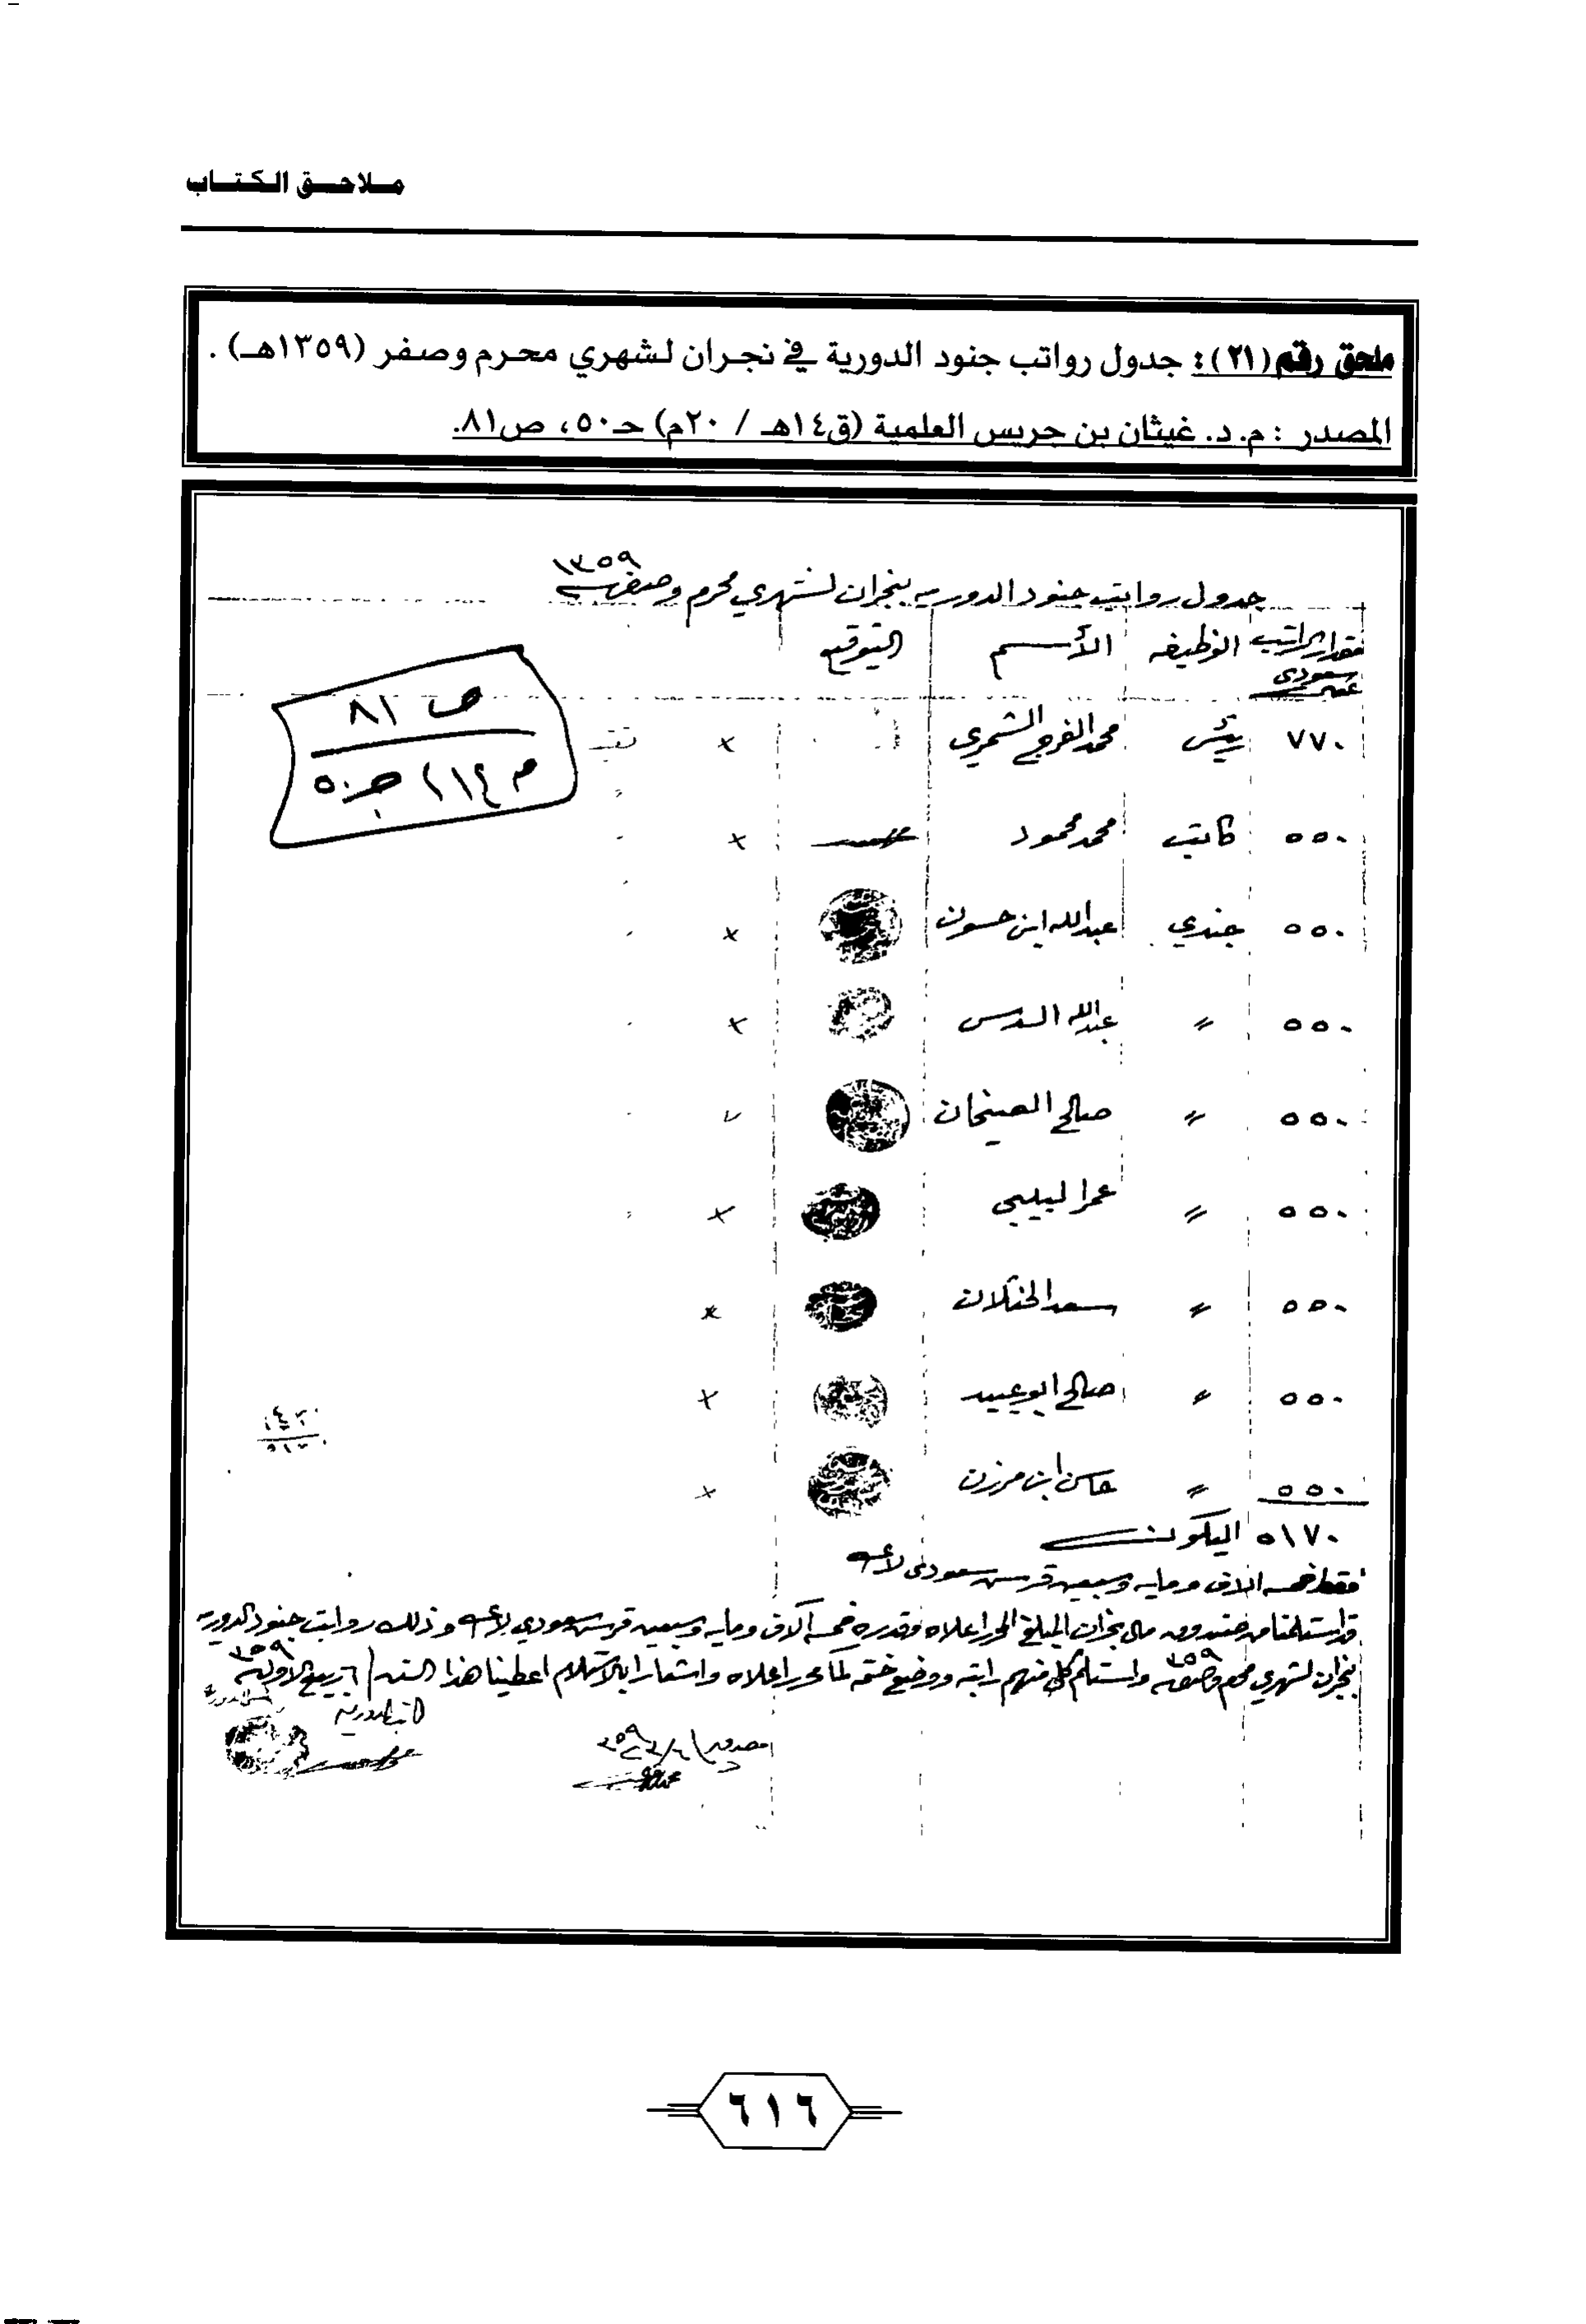 ملاحق الكتاب
ملحق رقم (٢١): جدول رواتب جنود الدورية في نجران لشهري محرم وصفر (١٣٥٩هـ).
المصدر : م. د. غيثان بن جريس العلمية (ق١٤هـ / ٢٠م) حـ٥٠، ص٨١.
جدول رواتب جنود الدوريه بنجران لشهري محرم وصفر ١٣٥٩
مقدار الراتب الوظيفه الأسم التوقيع
سعودي
ص ٨١
م ١٤ جـ ٥٠
٧٧٠ رئيس محمد الفرج الشمري ×
٥٥٠ كاتب محمد محمود ×
٥٥٠ جندي عبدالله ابن حسون ×
٥٥٠〃 عبدالله ×
٥٥٠〃 صالح
٥٥٠〃 عمر ×
٥٥٠〃 سعد الخثلان ×
٥٥٠〃 صالح ابو عبيد ×
٥٥٠〃 حسن ابن مرزن ×
٥١٧٠ اليكون
فقط خمسه الاف ومايه وسبعين قرش سعودي لاغير
قد استلمنا من صندوق مال نجران المبلغ المحرر اعلاه وقدره خمسه آلاف ومايه وسبعين قرش سعودي لاغير وذلك رواتب جنود الدوريه
بنجران لشهري محرم وصفر ٣٥٩ واستلم كل منهم راتبه ووضع ختمه كما محرر اعلاه واشعارا بالاستلام اعطينا هذا السند ٦ ربيع الاول ٣٥٩
كاتب الدوريه
٣٥٩
٦١٦